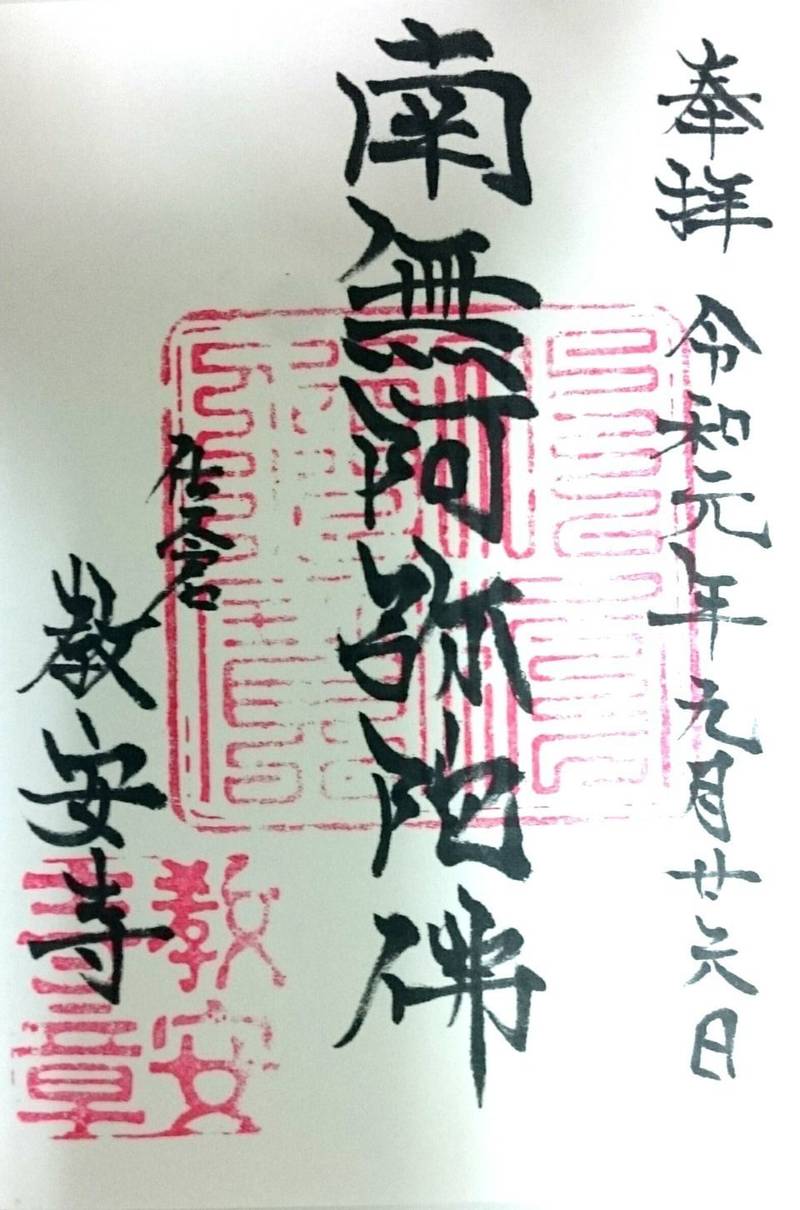 奉拝 令和元年九月廿六日
南無阿弥陀佛
教安寺
教安
寺章